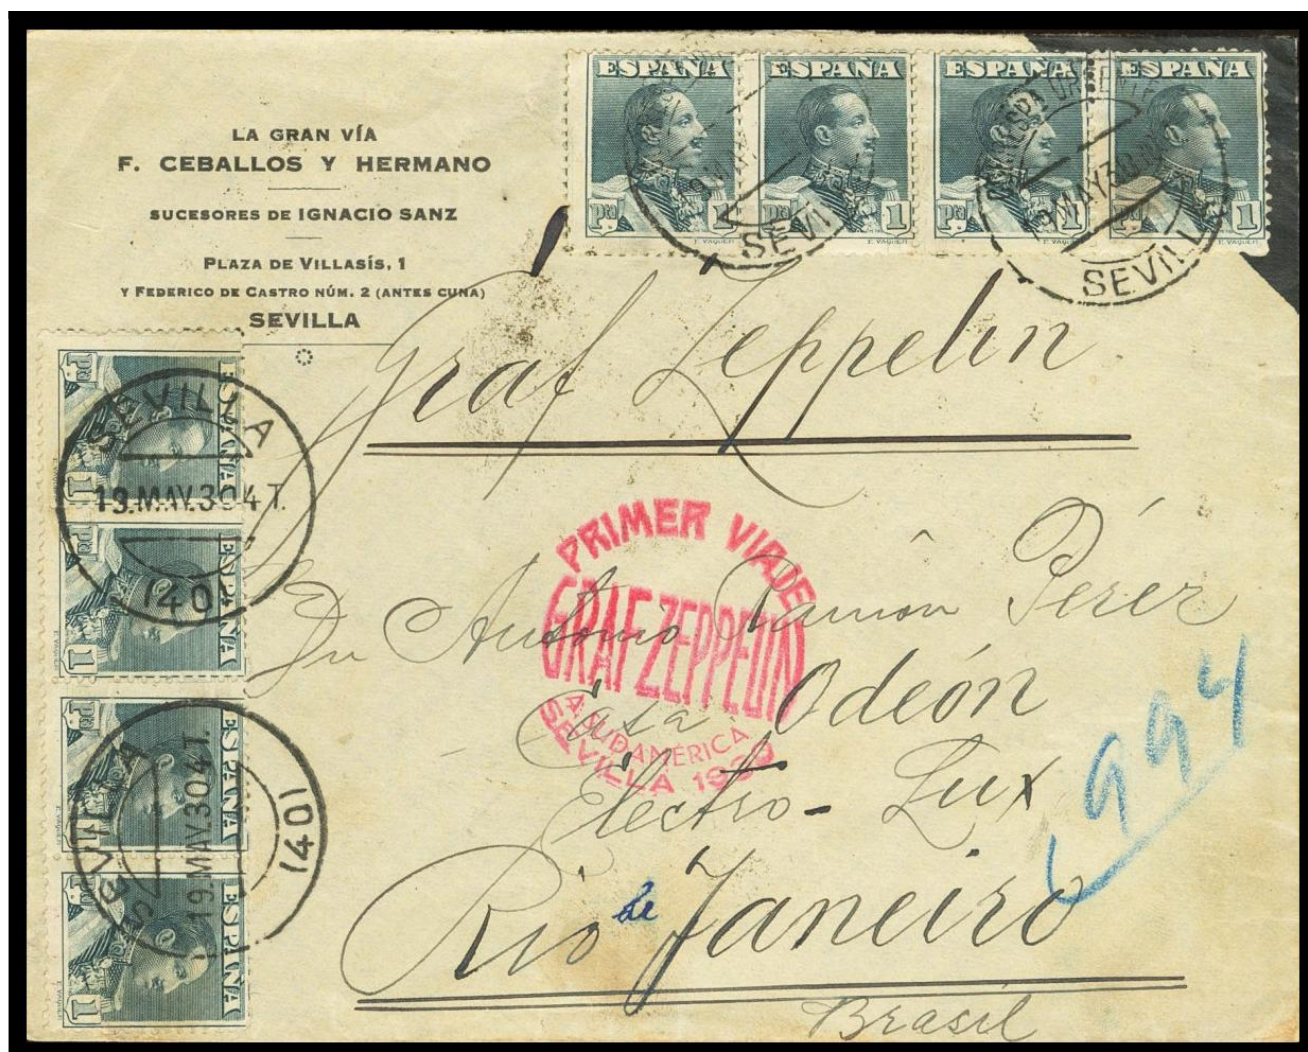 LA GRAN VÍA
F. CEBALLOS Y HERMANO
SUCESORES DE IGNACIO SANZ
PLAZA DE VILLASÍS, 1
Y FEDERICO DE CASTRO NÚM. 2 (ANTES CUNA)
SEVILLA
ESPAÑA ESPAÑA ESPAÑA ESPAÑA
Pta 1 Pta 1 Pta 1 Pta 1
SEVILLA
19.MAY.30
SEVILLA
Graf Zeppelin
ESPAÑA
Pta 1
ESPAÑA
Pta 1
ESPAÑA
Pta 1
ESPAÑA
Pta 1
SEVILLA
19.MAY.30 4 T.
(40)
SEVILLA
19.MAY.30 4 T.
(40)
PRIMER VIAJE
GRAF ZEPPELIN
A SUDAMÉRICA
SEVILLA 1930
Antonio Ramón Perez
Casa Odeón
Electro-Lux
Rio de Janeiro
Brasil
994